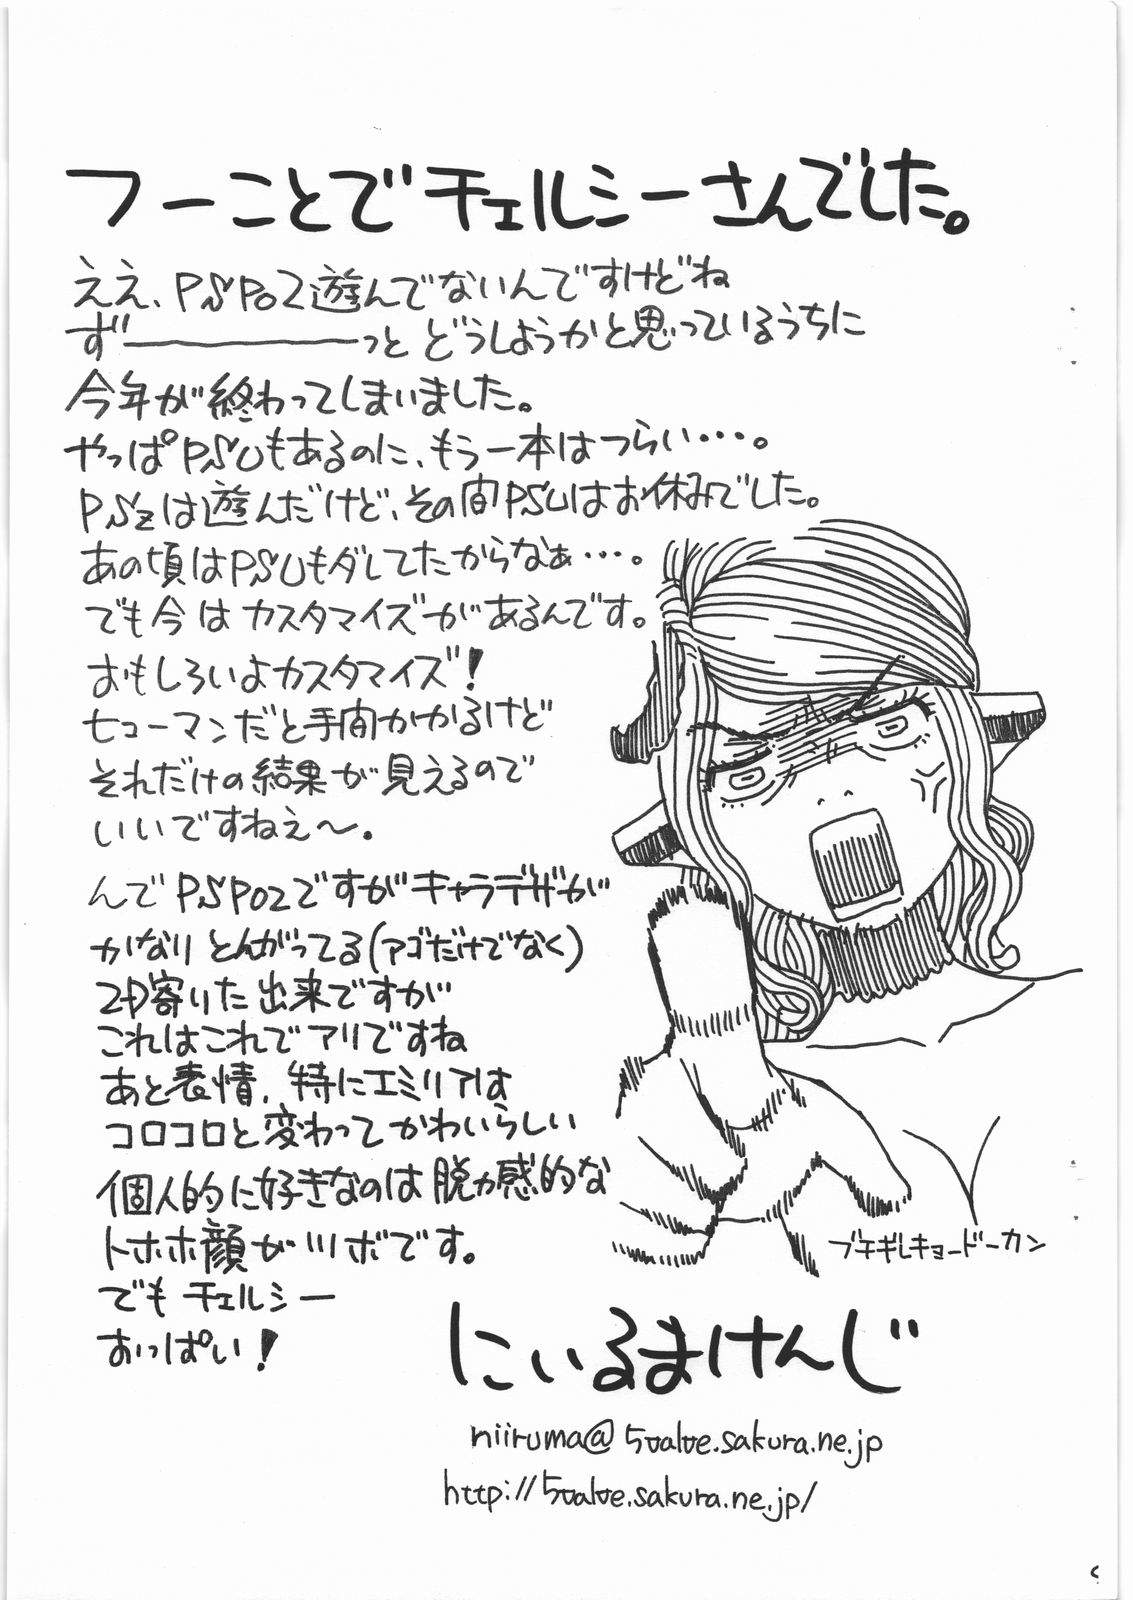 フーことでチェルシーさんでした。
ええ、PSPO2遊んでないんですけどね
ず――――っと どうしようかと思っているうちに
今年が終わってしまいました。
やっぱPSUもあるのに、もう一本はつらい・・・。
PSZは遊んだけど、その間PSUはお休みでした。
あの頃はPSUもダレてたからなぁ・・・。
でも今は カスタマイズがあるんです。
おもしろいよカスタマイズ!
ヒューマンだと手間かかるけど
それだけの結果が見えるので
いいですねぇ〜.
んで PSPO2ですがキャラデザが
かなり とんがってる(アゴだけでなく)
2D寄りた出来ですが
これはこれでアリですね
あと表情、特にエミリアは
コロコロと変わって かわいらしい
個人的に好きなのは 脱力感的な
トホホ顔がツボです。
でも チェルシー
おっぱい!
ブチギレキョードーカン
にいるまけんじ
niiruma@5value.sakura.ne.jp
http://5value.sakura.ne.jp/